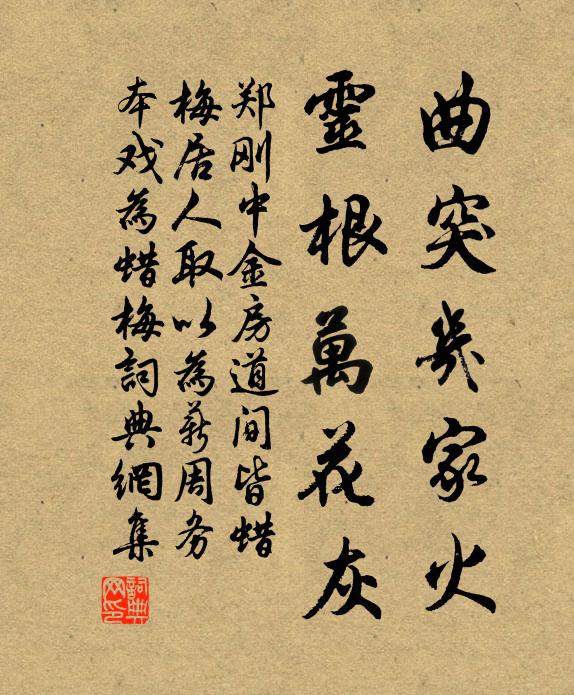 曲突幾家火
靈根萬花灰
郑刚中金房道间皆蜡
梅居人取以為薪周务
本戏為蜡梅詞典網集
詞典网印